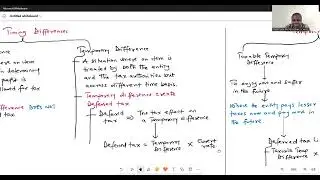 Microsoft Whiteboard
Untitled whiteboard
Timing Differences
Temporary Difference
A situation where an item is
treated by both the entity
and the tax authorities but
across different time basis.
Temporary difference create
Deferred tax
Deferred tax ⇒ The tax effect on
a Temporary difference
Deferred tax = Temporary Difference × Current rate
Taxable Temporary
Difference
To enjoy now and suffer
in the future
Where the entity pays lesser
taxes now and pay more in
the future.
where an item
in determining
profit is
allowed for tax
Difference Does Not
tax
Deferred tax Li
Taxable Temp
Difference ×